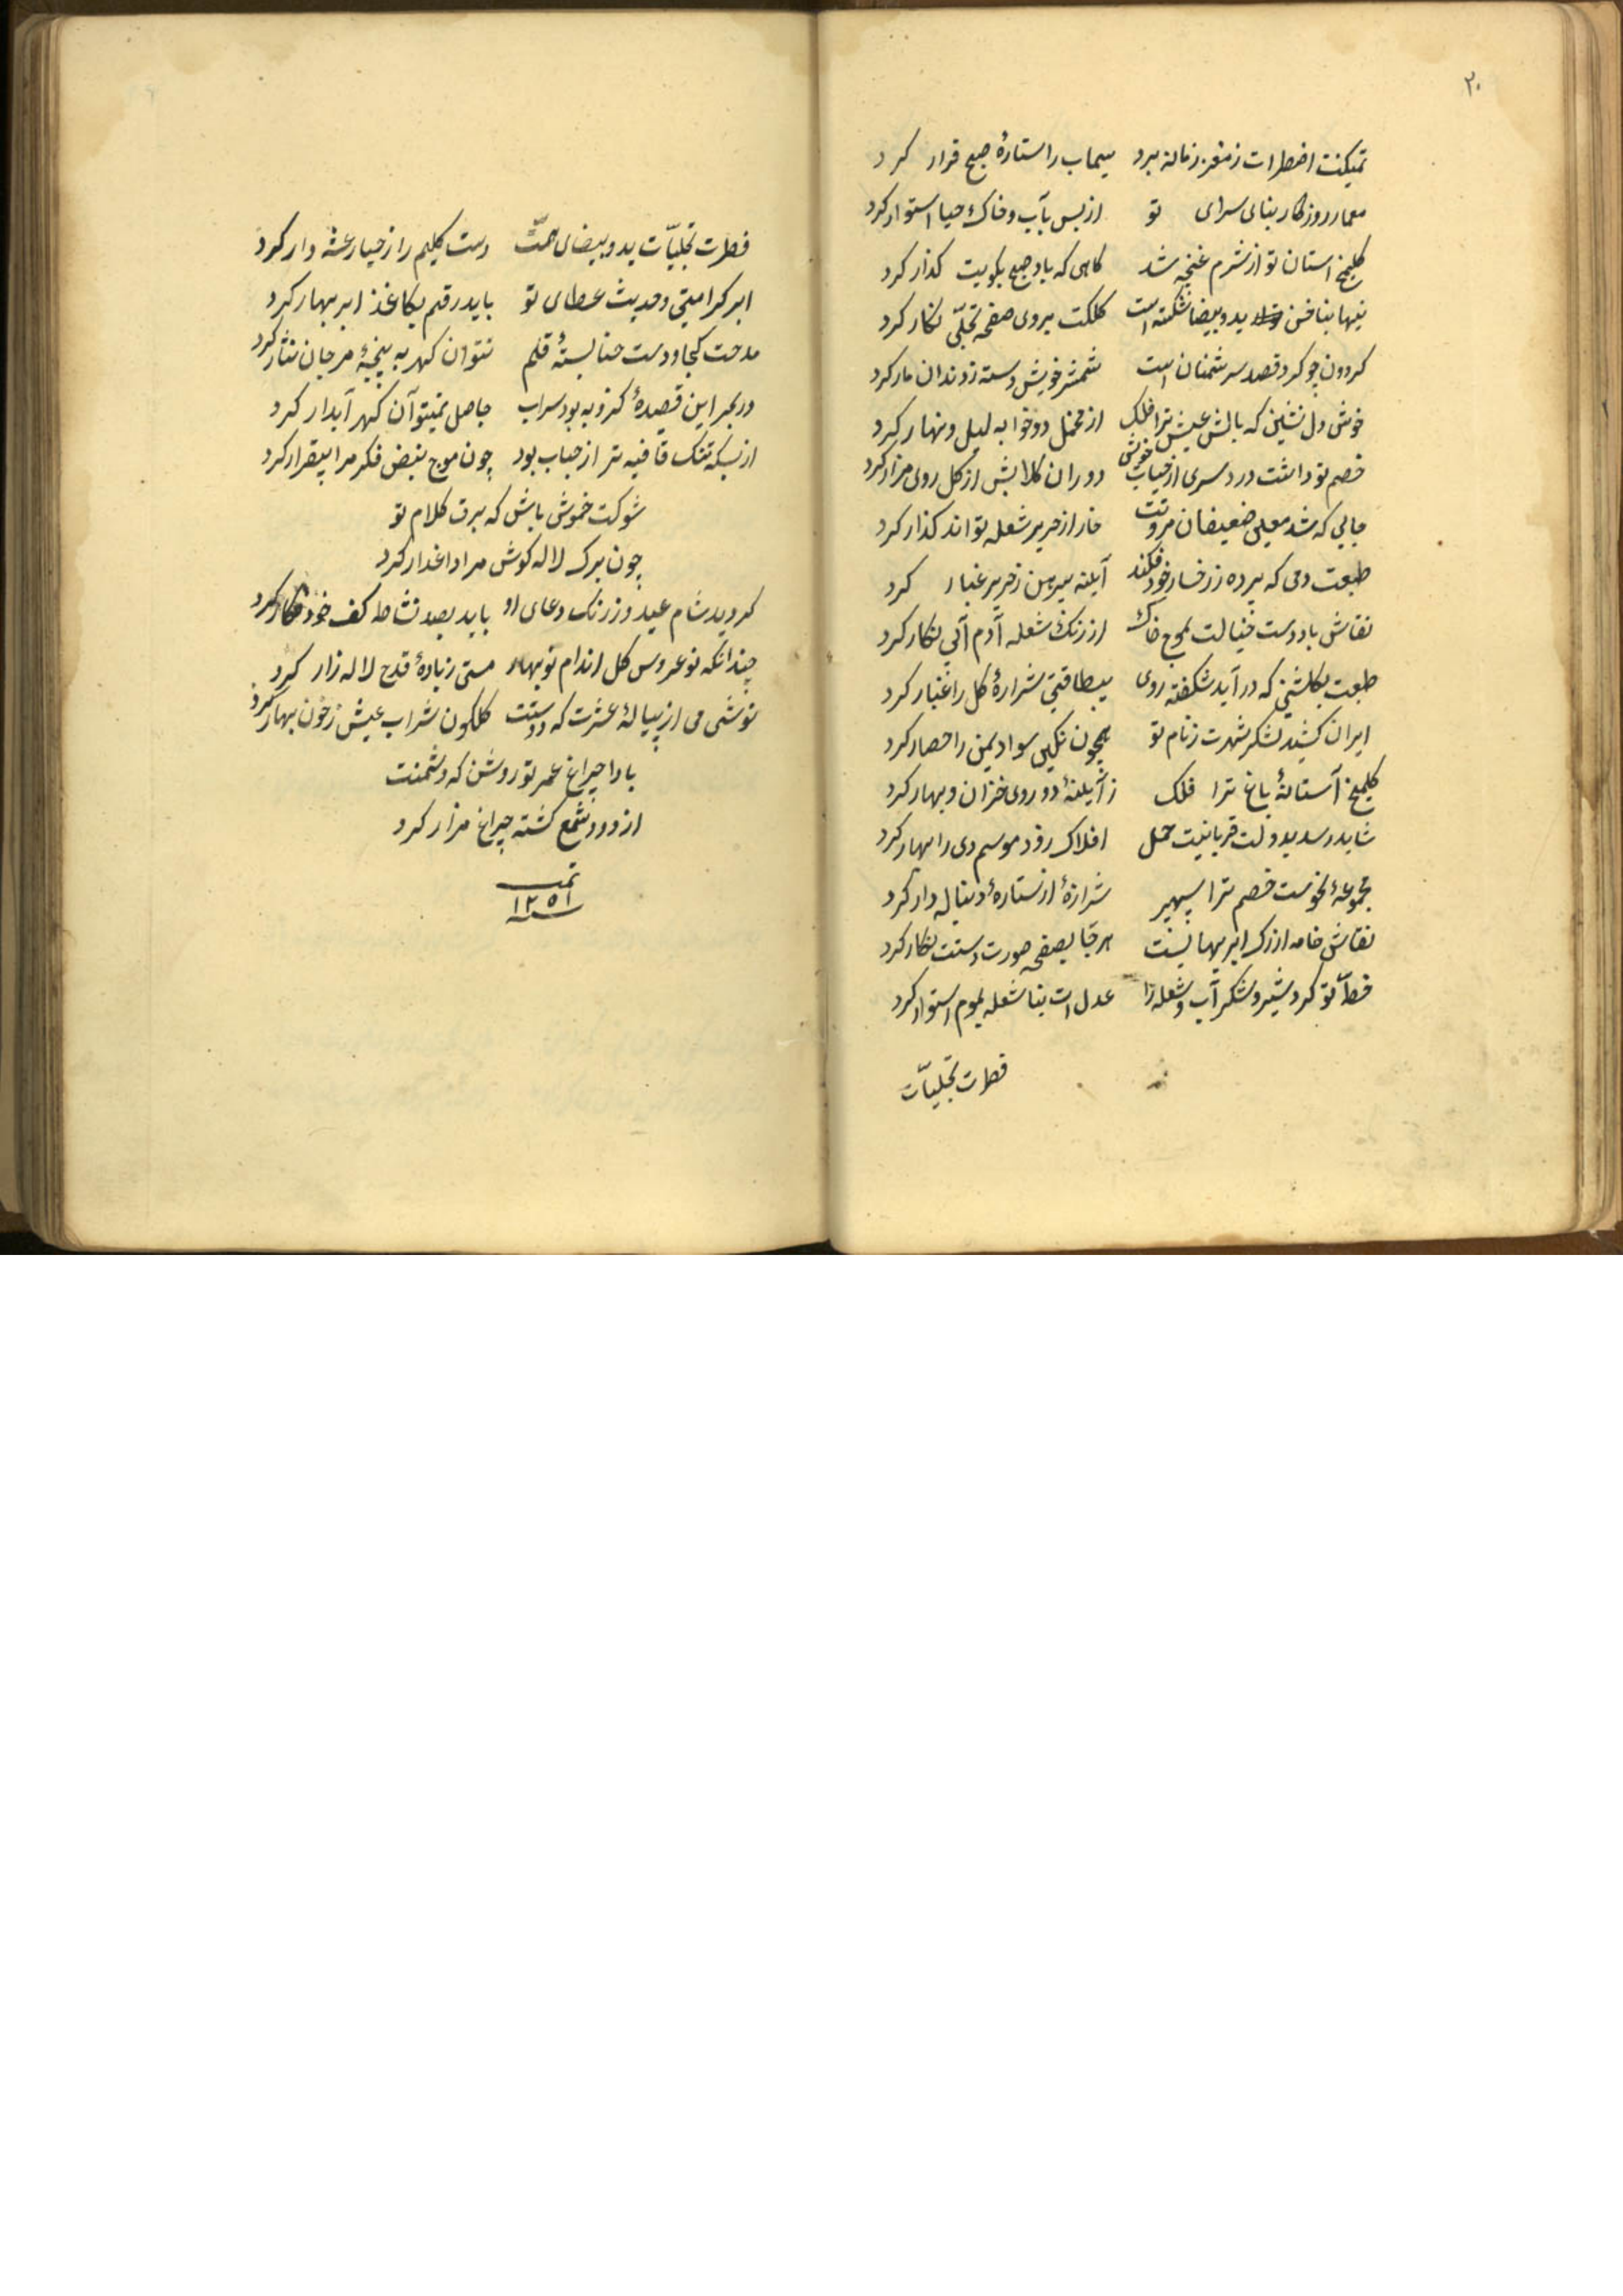 ۲۰
تمکینت اضطراب ز مغز زمانه برد سیماب را ستارهٔ صبح قرار کرد
معمار روزکار بنای سرای تو از بس بآب و خاک حیا استوار کرد
کلمیخ استان تو از شرم غنچه شد کاهی که باد صبح بکویت کذار کرد
ید و بیضا شکسته است کلکت بروی صفحه تجلّی نکار کرد
کردون چو کرد قصد سر دشمنان است شمشیر خویش دسته ز دندان مار کرد
خوش دل نشین که بالش عیش ترا فلک از مخمل دو خوابه لیل و نهار کرد
خصم تو داشت درد سری از خویش دوران کلابش از کل روی مزار کرد
جایی که شد معین ضعیفان مروتت خار از حریر شعله تواند کذار کرد
طبعت دمی که پرده ز رخسار خود فکند آیینه پیرهن ز حریر غبار کرد
نقاش باد دست خیالت بموج خاک از رنک شعله آدم آبی نکار کرد
طبعت بکلشنی که در آید شکفته روی بیطاقتی شرارهٔ کل را غبار کرد
ایران کشید لشکر شهرت ز نام تو همچون نکین سواد یمن را حصار کرد
کلمیخ آستانهٔ باغ ترا فلک ز آیینهٔ دو روی خزان و بهار کرد
شاید رسد بدولت قربانیت حمل افلاک رود موسم دی را بهار کرد
مجموعهٔ نحوست خصم ترا سپهر شیرازهٔ از ستارهٔ دنباله دار کرد
نقاش خامه از رک ابر بهار بست هر جا بصفحه صورت دستت نکار کرد
تو کرد شیر و شکر آب و شعله را عدلت بنا شعله بموم استوار کرد
قطرت تجلیّات
قطرت تجلیّات ید و بیضای همّت دست کلیم را ز حیا رعشه دار کرد
ابر کرامتی و حدیث عطای تو باید رقم بکاغذ ابر بهار کرد
مدحت کجا و دست حنا بستهٔ قلم نتوان کهر به پنجهٔ مرجان نثار کرد
در بحر این قصیدهٔ کزو به بود سراب حاصل نمیتوان کهر آبدار کرد
از بسکه تنک قافیه تر از حباب بود چون موج نبض فکر مرا بیقرار کرد
شوکت خموش باش که برق کلام تو
چون برک لاله کوش مرا داغدار کرد
کردید شام عید و ز رنک دعای او باید بصد نشاط کف خود نکار کرد
چندانکه نو عروس کل اندام نوبهار مستی ز بادهٔ قدح لاله زار کرد
نوشی می از پیالهٔ عشرت که دوستت کلکون شراب عیش ز خون بهار کرد
بادا چراغ عمر تو روشن که دشمنت
از دود شمع کشته چراغ مزار کرد
تمت
۱۲۵۱